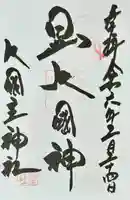 奉拝 令和六年 月四日
日出大國神
大國主神社